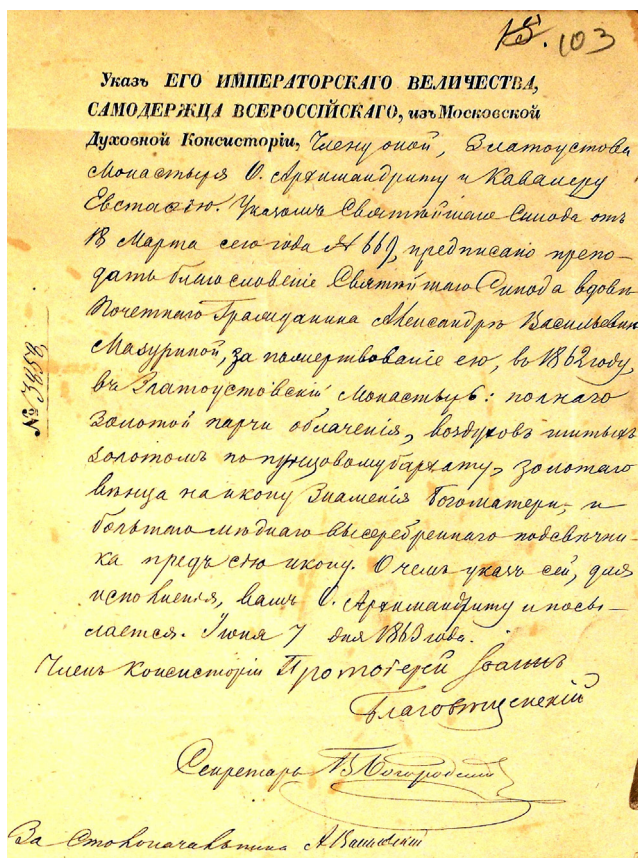 103
Указъ ЕГО ИМПЕРАТОРСКАГО ВЕЛИЧЕСТВА,
САМОДЕРЖЦА ВСЕРОССІЙСКАГО, изъ Московской
Духовной Консисторіи, Члену оной, Златоустова
Монастыря О. Архимандриту и Кавалеру
Евстафію. Указомъ Святѣйшаго Синода отъ
18 Марта сего года № 667, предписано препо-
дать благословеніе Святѣйшаго Синода вдовѣ
Почетнаго Гражданина Александрѣ Васильевнѣ
Мазуриной, за пожертвованіе ею, въ 1862 году,
въ Златоустовскій Монастырь: полнаго
золотой парчи облаченія, воздуховъ шитыхъ
золотомъ по пунцовому бархату, золотаго
вѣнца на икону Знаменія Богоматери, и
большаго мѣднаго высеребреннаго подсвѣчни-
ка предъ сію икону. О чемъ указъ сей, для
исполненія, вамъ О. Архимандриту и посы-
лается. Іюня 7 дня 1863 года.
№ 3458
Членъ Консисторіи Протоіерей Іоаннъ
Благовѣщенскій
Секретарь
За Столоначальника